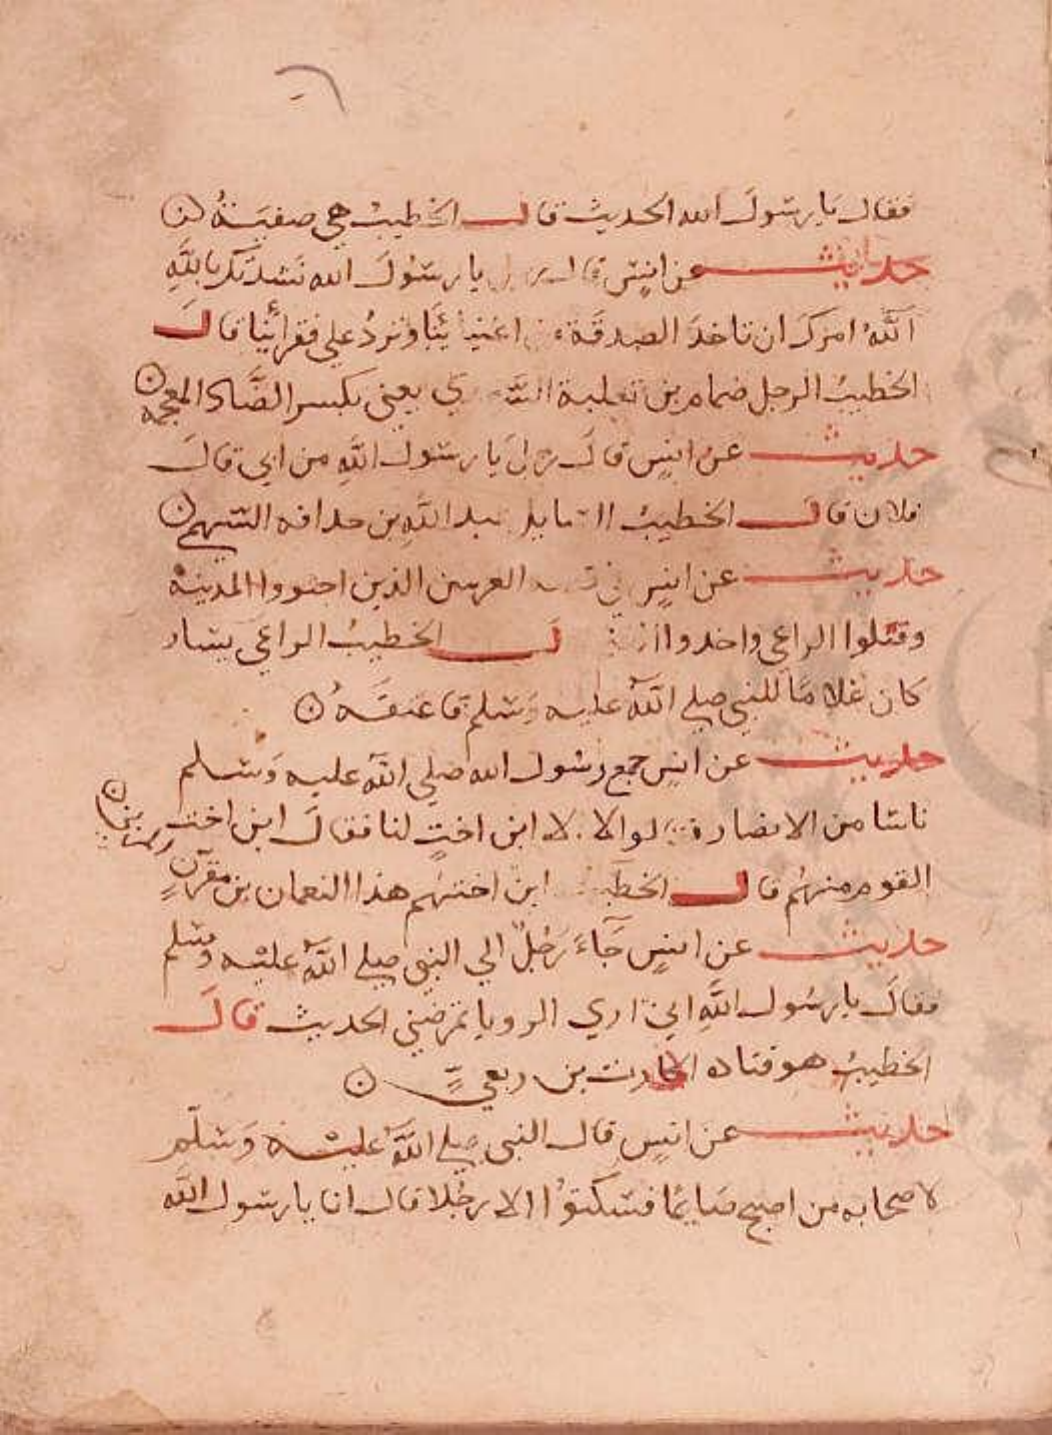 فقال يا رسول الله الحديث قال الخطيب هي صفية
حديث عن انس قال يا رسول الله نشدتك بالله
آلله امرك ان تاخذ الصدقة اغنيائنا وترد على فقرائنا قال
الخطيب الرجل ضمام بن ثعلبة يعني بكسر الضاد المعجمة
حديث عن انس قال رجل يا رسول الله من ابي قال
فلان قال الخطيب السايل عبد الله بن حذافه السهمي
حديث عن انس في العرنيين الذين اجتووا المدينة
وقتلوا الراعي واخذوا الخطيب الراعي يسار
كان غلاما للنبي صلى الله عليه وسلم فاعتقه
حديث عن انس جمع رسول الله صلى الله عليه وسلم
ناسا من الانصار فقالوا الا ابن اخت لنا فقال ابن اخت
القوم منهم قال الخطيب ابن اختهم هذا النعمان بن مقرن
حديث عن انس جاء رجل الى النبي صلى الله عليه وسلم
فقال يا رسول الله اني ارى الرويا تمرضني الحديث قال
الخطيب هو قتاده الحارث بن ربعي
حديث عن انس قال النبي صلى الله عليه وسلم
لاصحابه من اصبح صايما فسكتوا الا رجلا قال انا يا رسول الله